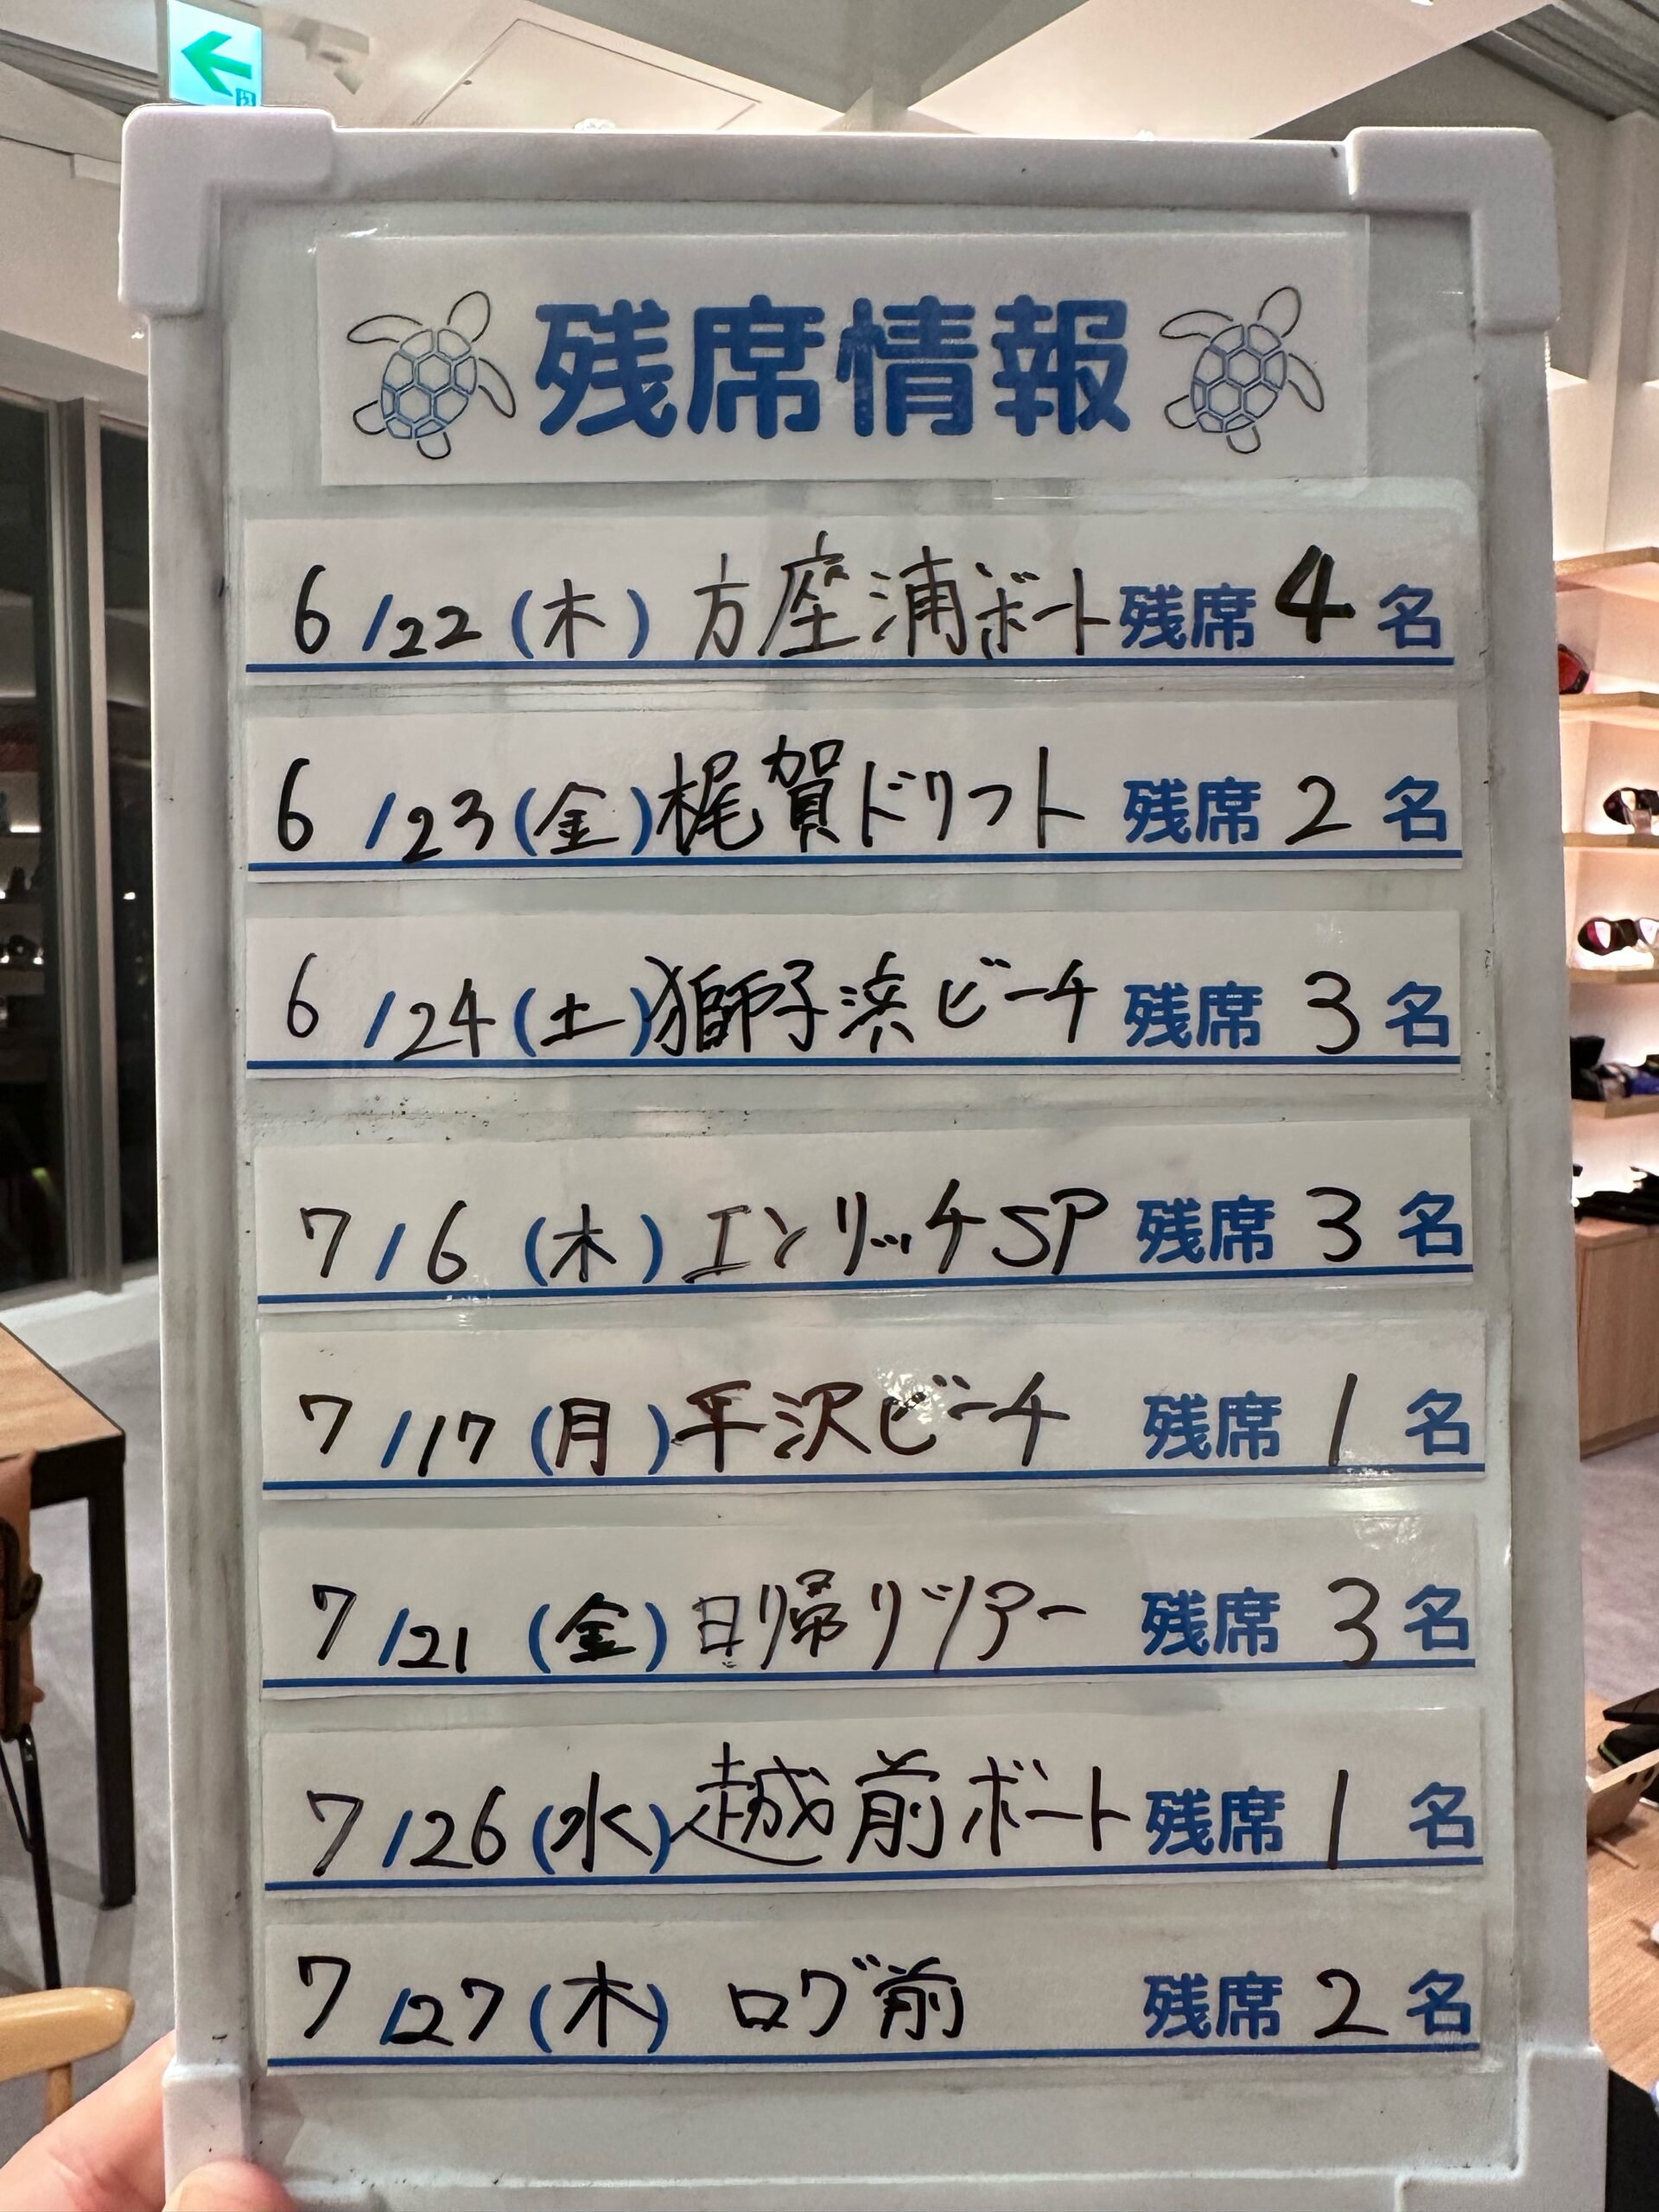 残席情報
6/22(木) 方座浦ボート 残席 4 名
6/23(金) 梶賀ドリフト 残席 2 名
6/24(土) 獅子浜ビーチ 残席 3 名
7/6(木) エンリッチSP 残席 3 名
7/17(月) 平沢ビーチ 残席 1 名
7/21(金) 日帰りツアー 残席 3 名
7/26(水) 越前ボート 残席 1 名
7/27(木) ログ前 残席 2 名